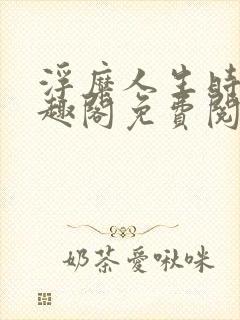 浮靡人生時
趣閣免費閱
奶茶愛啾咪